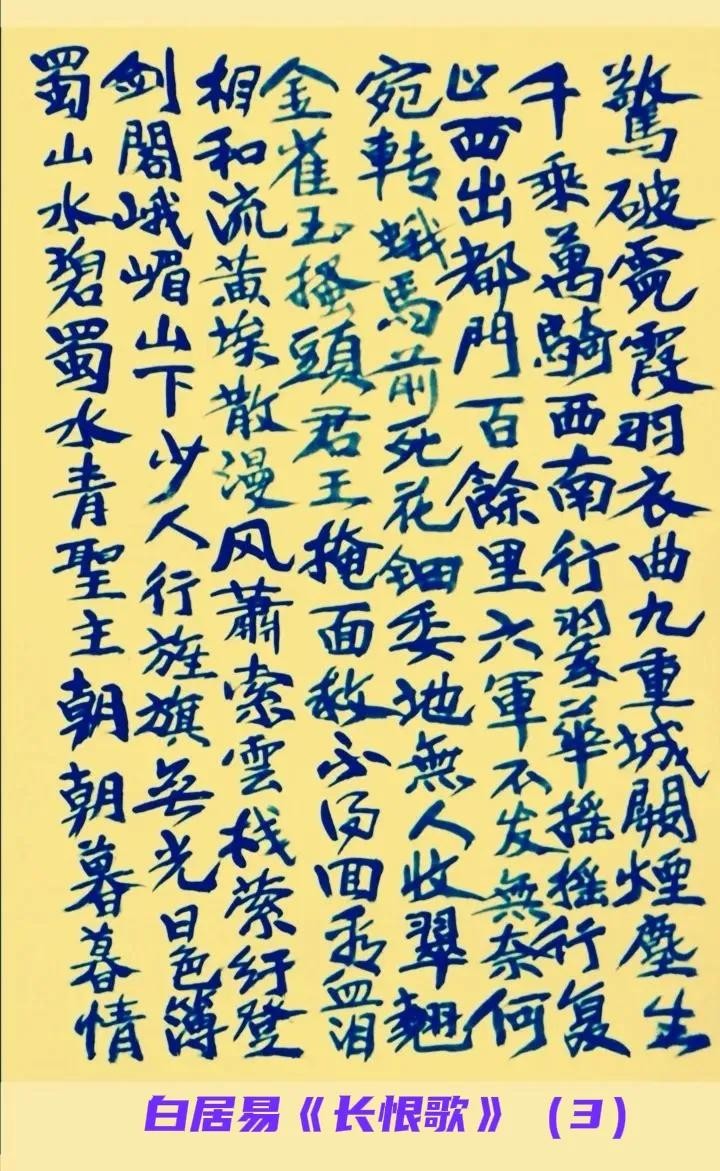 驚破霓霞羽衣曲九重城闕煙塵生
千乘萬騎西南行翠華摇摇行复
止西出都門百餘里六軍不发無奈何
宛轉蛾馬前死花钿委地無人收翠翹
金雀玉搔頭君王掩面救不得回看血泪
相和流黄埃散漫风蕭索雲栈萦纡登
剑閣峨嵋山下少人行旌旗無光日色簿
蜀山水碧蜀水青聖主朝朝暮暮情
白居易《长恨歌》（3）